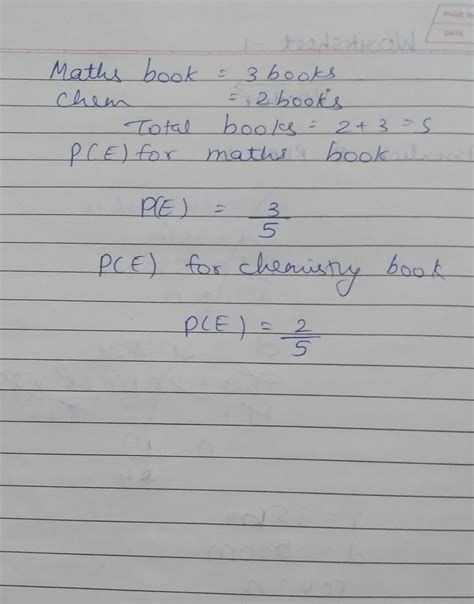 PAGE
DATE
Worksheet
Maths book = 3 books
Chem = 2 books
Total books = 2 + 3 = 5
P(E) for maths book
P(E) = 3/5
P(E) for chemistry book
P(E) = 2/5